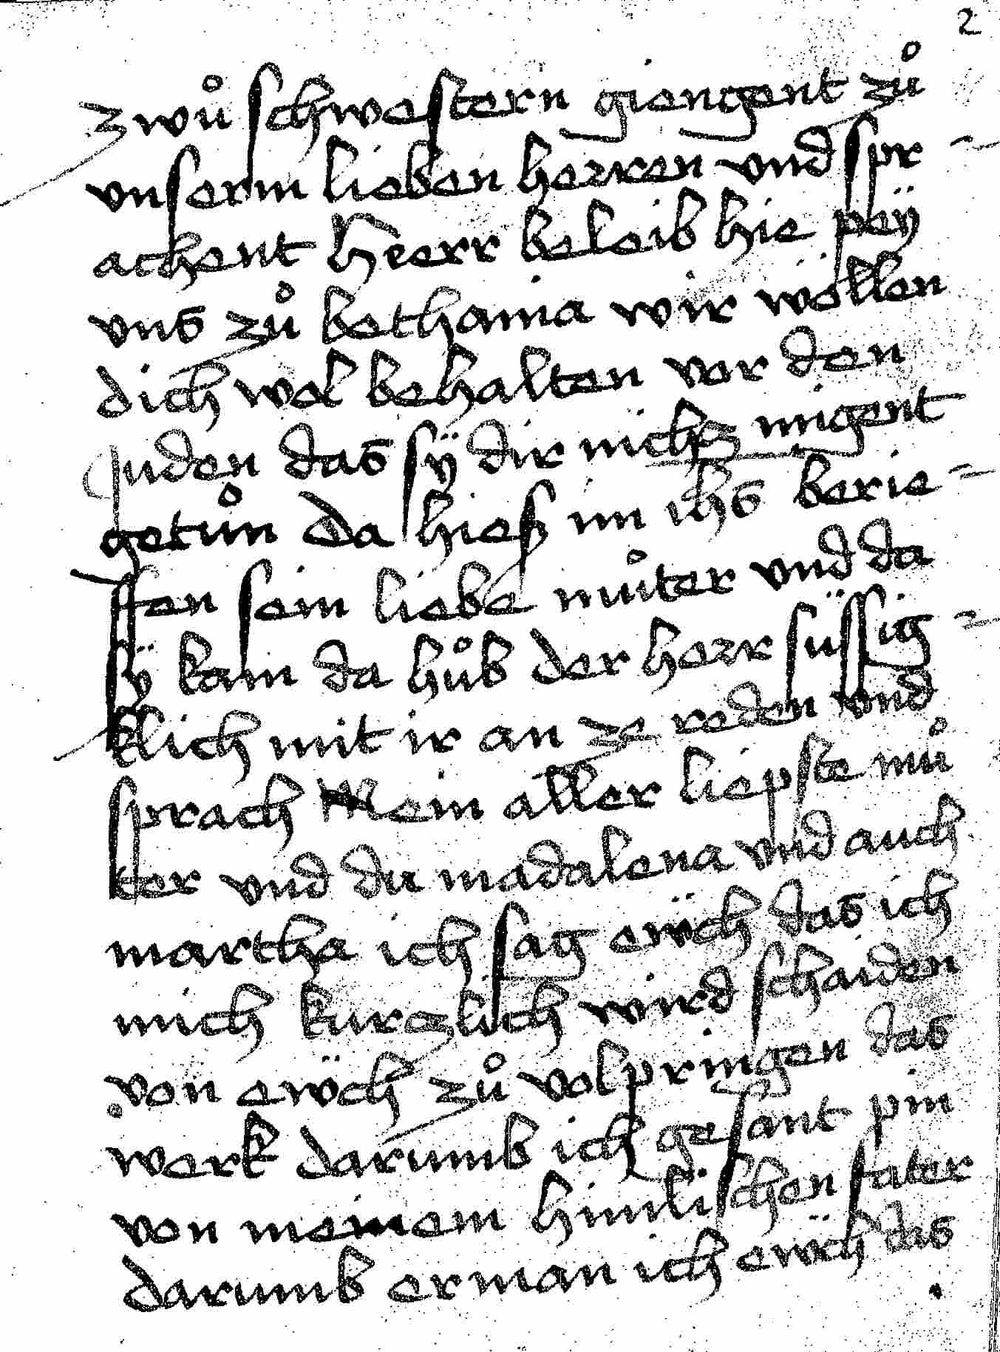 2
zwů schwestern giengent zů
vnserm lieben herren vnd spr-
achent Herr beleib hie peÿ
vns zů bethania wir wöllen
dich wol behalten vor den
Juden das sÿ dir nichcz mügent
getůn da hieß im ihs berüe-
ffen sein liebe můter vnd da
sÿ kam da hůb der herr süssig-
klich mit ir an ze reden vnd
sprach Mein aller liepste mů
ter vnd du madalena vnd auch
martha ich sag ewch das ich
mich kurczlich wird schaiden
von ewch zů volpringen das
werk darumb ich gesant pin
von meinem himlischen fater
darumb erman ich ewch das